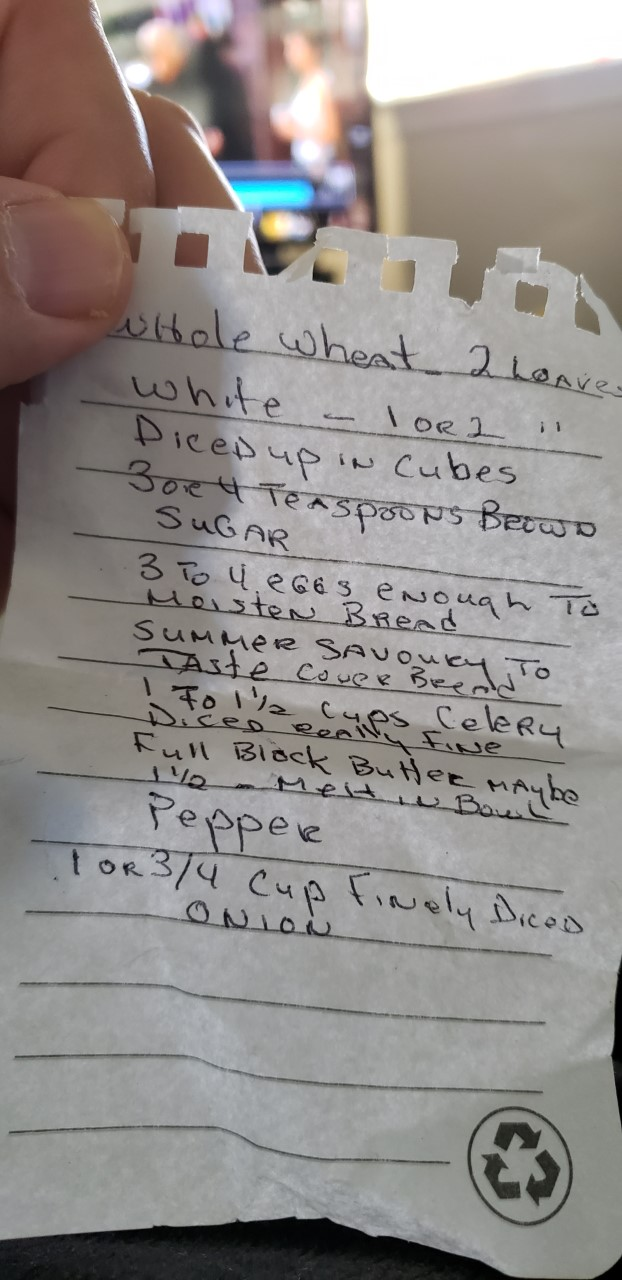 Whole Wheat - 2 Loaves
White - 1 or 2 "
Diced up in Cubes
3 or 4 Teaspoons Brown
Sugar
3 To 4 eggs enough To
Moisten Bread
Summer Savoury To
Taste Cover Bread
1 To 1 1/2 Cups Celery
Diced really Fine
Full Block Butter maybe
1 1/2 - Melt in Bowl
Pepper
1 or 3/4 Cup Finely Diced
Onion